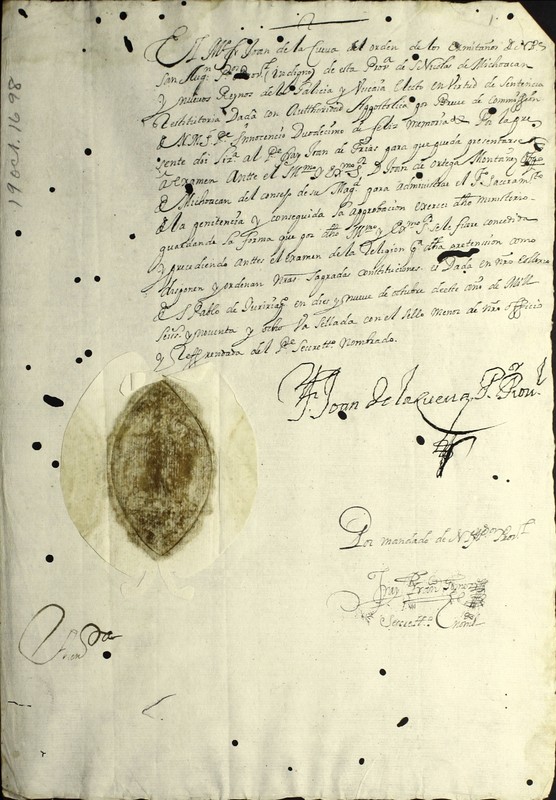 19 Oct. 1698
1
El Mo. fr. Joan de la Cueva del orden de los ermitaños de N. P. S.
San Augn. Pr. Provl. (Yndigno) de esta Prova. de S. Nicolas de Michoacan
y nuevos Reynos de la Galicia y Vizcaia Electo en Virtud de Sentencia
Restitutoria Dada con Authoridad Appostolica por Breve de Commission
de N. M. S. Pe. Innocencio Duodecimo de feliz Memoria &a. Por la pre
sente doi licª. al Pe. fray Joan de Frias para que pueda presentarse
a examen Antte el Illmo. y Exmo. Sr. D. Joan de Ortega Montañez Obpo.
de Michoacan del consejo de su Magd. para administrar el Sto. Sacramto.
de la penitencia y conseguida la approbacion exercer dho Ministerio
guardando la forma que por dho Illmo. y Exmo. Sr. se le fuere concedida
y precediendo anttes el examen de la Religion pª. dha pretension como
disponen y ordenan nras sagradas constituciones. es Dada en nro convto
de S. Pablo de Yuririaº. en dies y nueve de octubre deeste año de Mill
seiss. y noventa y ocho Va sellada con el sello Menor de nro officio
y Reffrendada del Pe. Secretto. Nombrado.
Fr. Joan de la Cueva Pr. Provl.
Por mandado de N. M. R. Pe. Provl.
Fray
Secretto.